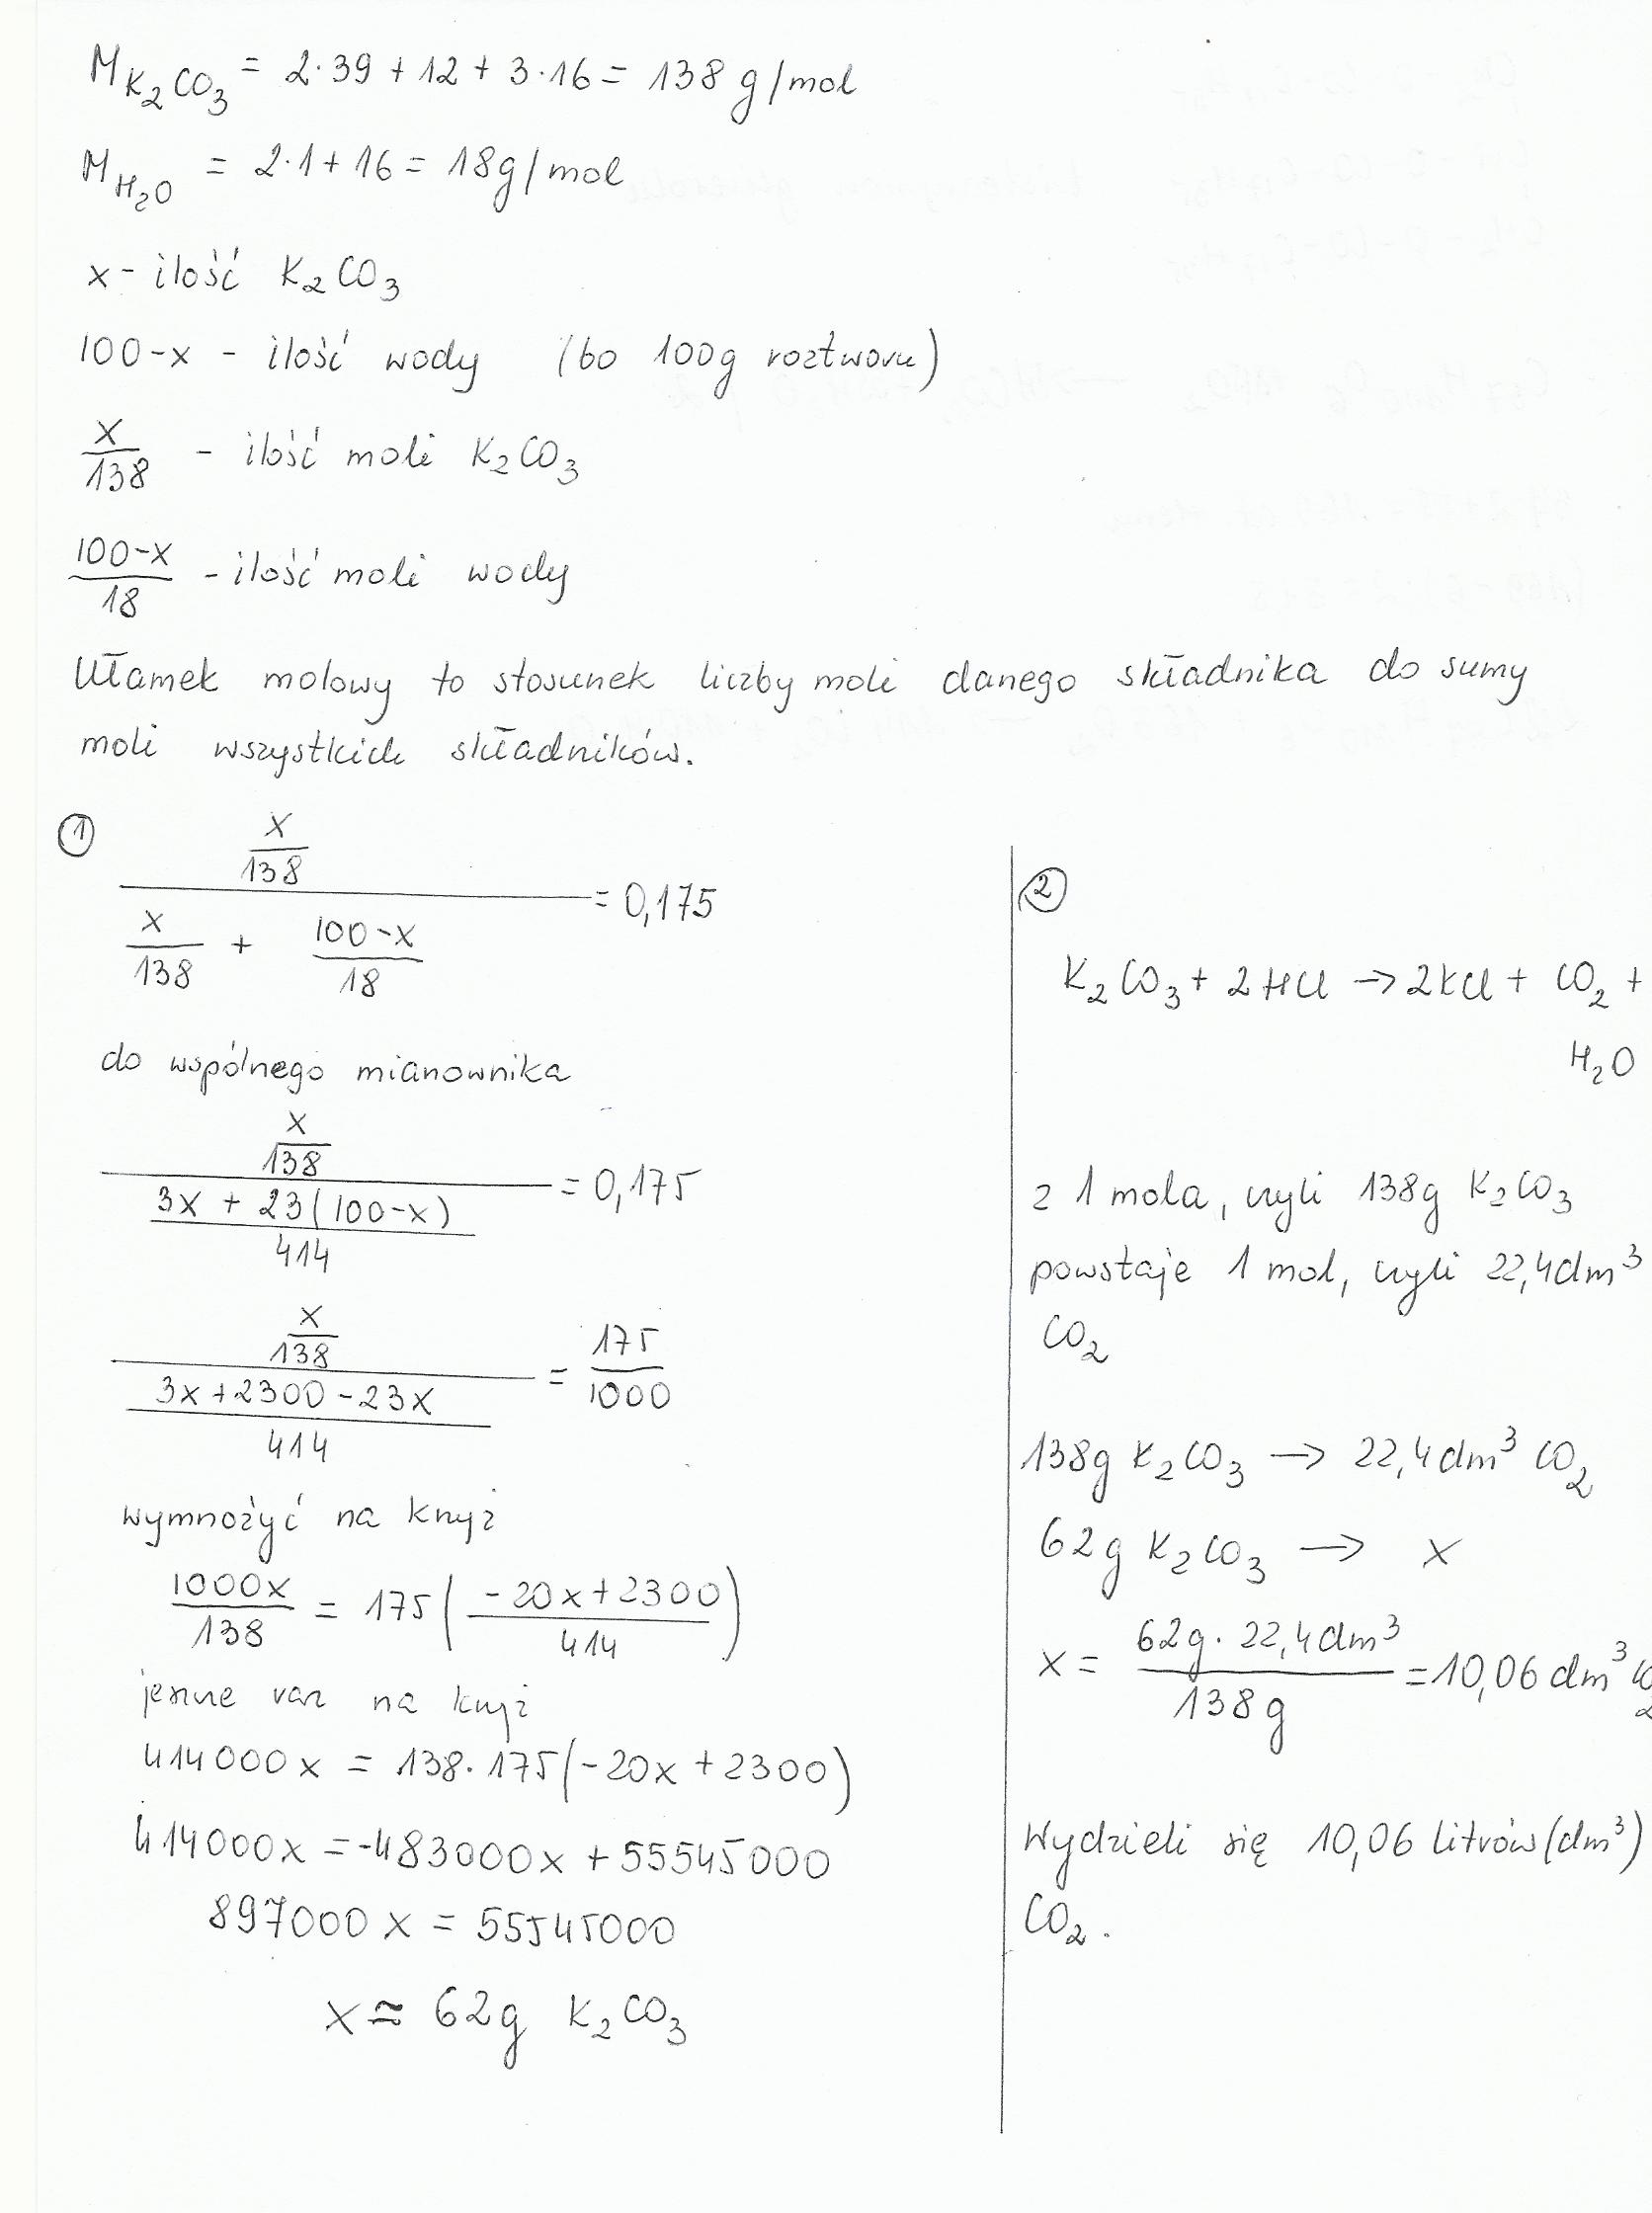 M K₂CO₃ = 2·39 + 12 + 3·16 = 138 g/mol
M H₂O = 2·1 + 16 = 18g/mol
x - ilość K₂CO₃
100-x - ilość wody (bo 100g roztworu)
x/138 - ilość moli K₂CO₃
100-x/18 - ilość moli wody
Ułamek molowy to stosunek liczby moli danego składnika do sumy
moli wszystkich składników.
①
x/138 / (x/138 + 100-x/18) = 0,175
do wspólnego mianownika
x/138 / (3x + 23(100-x)/414) = 0,175
x/138 / (3x+2300-23x/414) = 175/1000
wymnożyć na krzyż
1000x/138 = 175(-20x+2300/414)
jeszcze raz na krzyż
414000x = 138·175(-20x+2300)
414000x = -483000x + 55545000
897000x = 55545000
x ≈ 62g K₂CO₃
②
K₂CO₃ + 2HCl → 2KCl + CO₂ +
H₂O
z 1 mola, czyli 138g K₂CO₃
powstaje 1 mol, czyli 22,4dm³
CO₂
138g K₂CO₃ → 22,4dm³ CO₂
62g K₂CO₃ → x
x = 62g · 22,4dm³/138g = 10,06 dm³ CO₂
Wydzieli się 10,06 litrów(dm³)
CO₂.